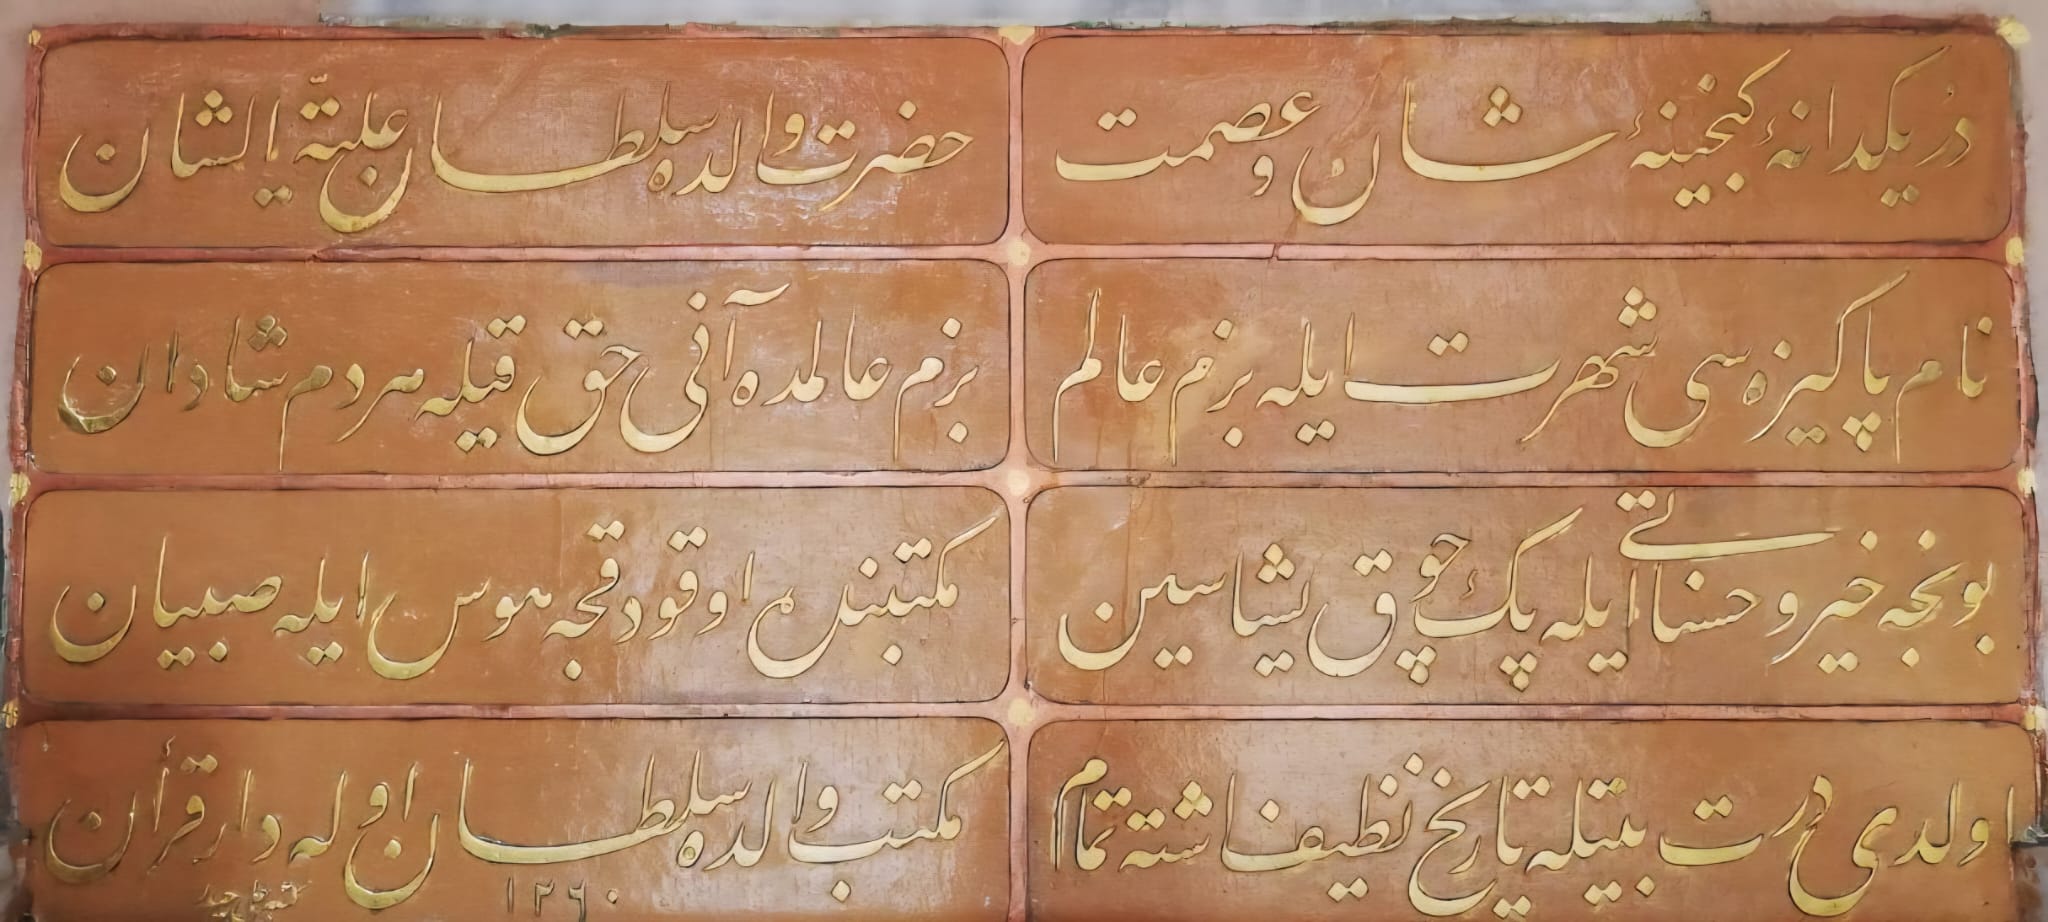 در یكدانهٔ كنجینهٔ شان و عصمت
حضرت والده سلطان علیّة الشان
نام پاكیزه سی شهرت ایله بزم عالم
بزم عالمده آنی حق قیله هردم شادان
بونجه خیر و حسناتی ایله پك چوق یشاسین
مكتبنده اوقودقجه هوس ایله صبیان
اولدی درت بیتله تاریخ نظیفا شته تمام
مكتب والده سلطان اوله دار قرأن
١٢٦٠